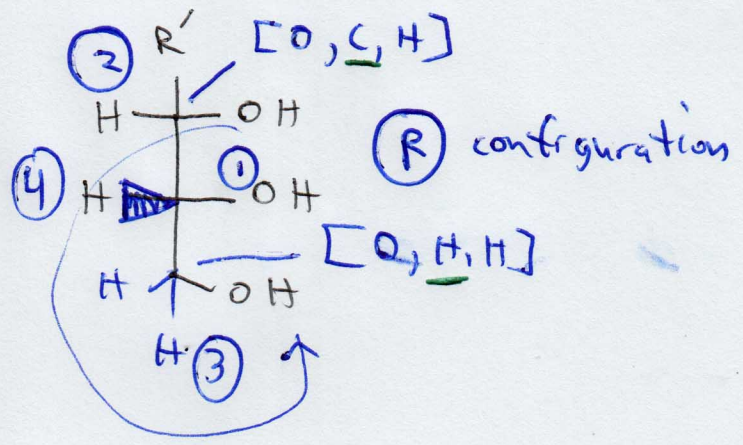 R′ [O, C, H]
②
H OH
Ⓡ configuration
④ H ① OH
[O, H, H]
H OH
H ③